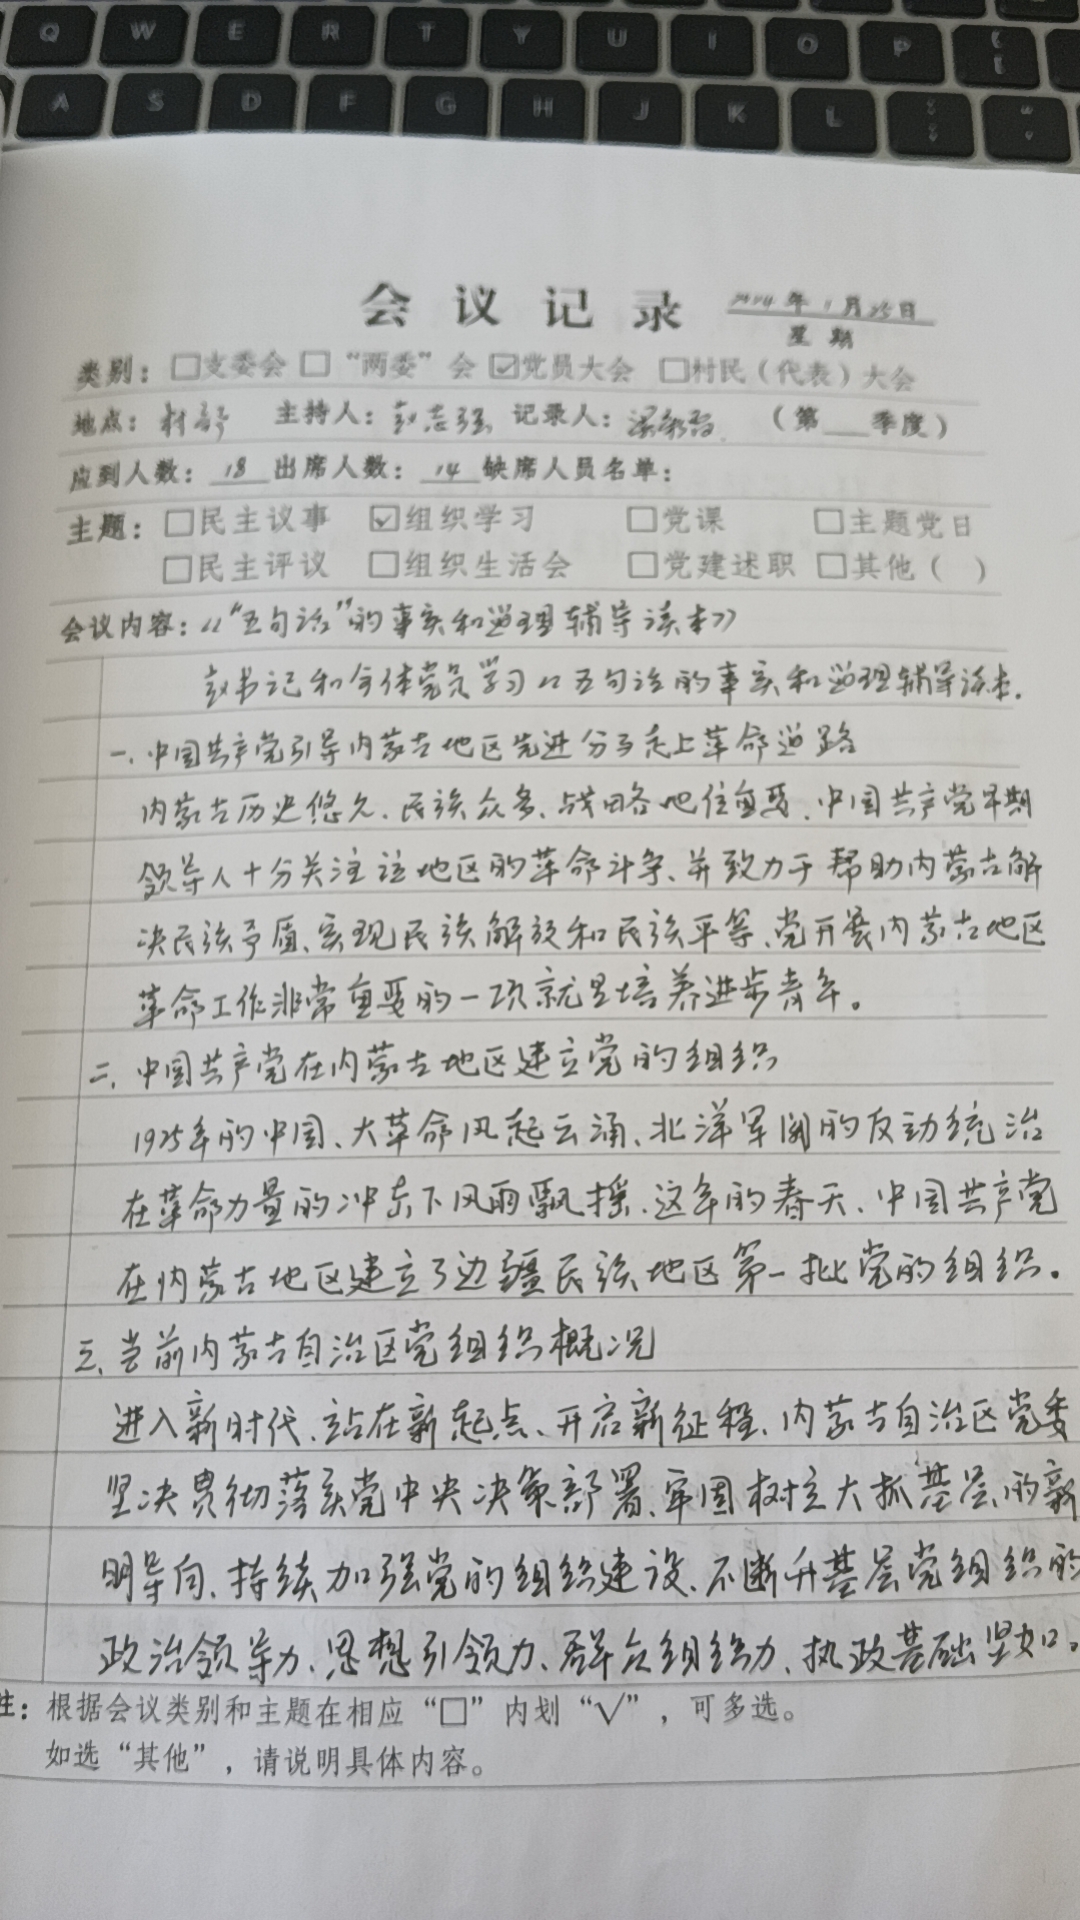 Q W E R T Y U I O P
A S D F G H J K L
会议记录 年1月25日
星期
类别：□支委会 □“两委”会 ☑党员大会 □村民（代表）大会
地点：村部 主持人：赵志强 记录人： （第___季度）
应到人数：18 出席人数：14 缺席人员名单：
主题：□民主议事 ☑组织学习 □党课 □主题党日
□民主评议 □组织生活会 □党建述职 □其他（ ）
会议内容：《“五句话”的事实和道理辅导读本》
赵书记和全体党员学习《五句话的事实和道理辅导读本.
一、中国共产党引导内蒙古地区先进分子走上革命道路
内蒙古历史悠久、民族众多、战略地位重要、中国共产党早期
领导人十分关注这地区的革命斗争、并致力于帮助内蒙古解
决民族矛盾、实现民族解放和民族平等、党开展内蒙古地区
革命工作非常重要的一项就是培养进步青年。
二、中国共产党在内蒙古地区建立党的组织
1925年的中国、大革命风起云涌、北洋军阀的反动统治
在革命力量的冲击下风雨飘摇、这年的春天、中国共产党
在内蒙古地区建立了边疆民族地区第一批党的组织。
三、当前内蒙古自治区党组织概况
进入新时代、站在新起点、开启新征程、内蒙古自治区党委
坚决贯彻落实党中央决策部署、牢固树立大抓基层的新
明导向、持续加强党的组织建设、不断升基层党组织的
政治领导力、思想引领力、群众组织力、执政基础坚如口。
注：根据会议类别和主题在相应“□”内划“√”，可多选。
如选“其他”，请说明具体内容。